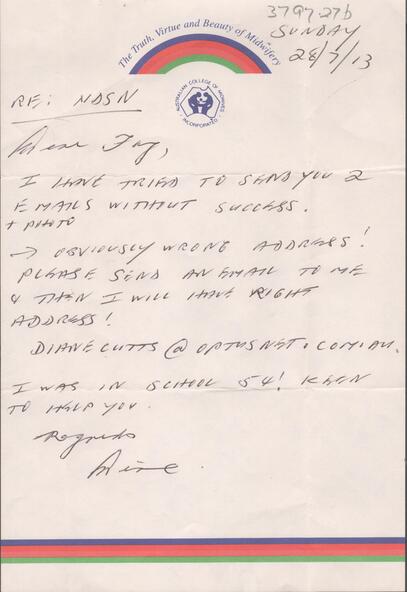 3797.27b
The Truth, Virtue and Beauty of Midwifery
SUNDAY
28/7/13
AUSTRALIAN COLLEGE OF MIDWIVES
INCORPORATED
RE: NDSN
Dear
I HAVE TRIED TO SEND YOU 2
EMAILS WITHOUT SUCCESS.
+ PHOTO
→ OBVIOUSLY WRONG ADDRESS!
PLEASE SEND AN EMAIL TO ME
& THEN I WILL HAVE RIGHT
ADDRESS!
DIANECUTTS@OPTUSNET.COM.AU.
I WAS IN SCHOOL 54! KEEN
TO HELP YOU.
Regards